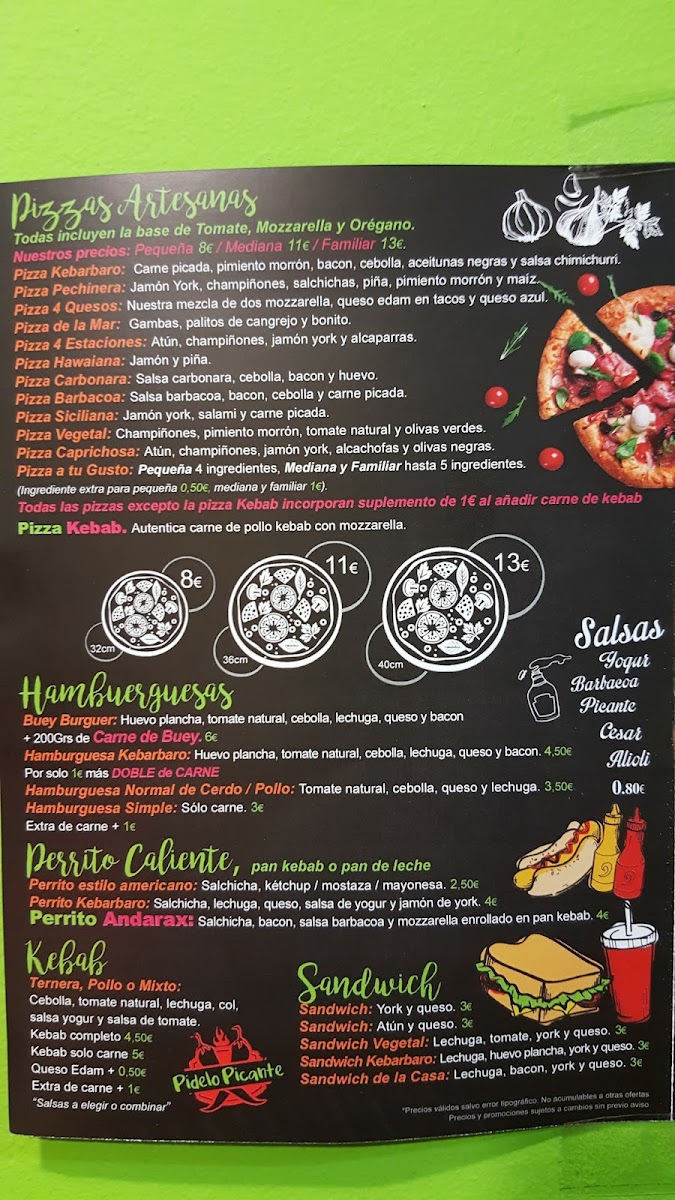 Pizzas Artesanas
Todas incluyen la base de Tomate, Mozzarella y Orégano.
Nuestros precios: Pequeña 8€ / Mediana 11€ / Familiar 13€.
Pizza Kebarbaro: Carne picada, pimiento morrón, bacon, cebolla, aceitunas negras y salsa chimichurri.
Pizza Pechinera: Jamón York, champiñones, salchichas, piña, pimiento morrón y maíz.
Pizza 4 Quesos: Nuestra mezcla de dos mozzarella, queso edam en tacos y queso azul.
Pizza de la Mar: Gambas, palitos de cangrejo y bonito.
Pizza 4 Estaciones: Atún, champiñones, jamón york y alcaparras.
Pizza Hawaiana: Jamón y piña.
Pizza Carbonara: Salsa carbonara, cebolla, bacon y huevo.
Pizza Barbacoa: Salsa barbacoa, bacon, cebolla y carne picada.
Pizza Siciliana: Jamón york, salami y carne picada.
Pizza Vegetal: Champiñones, pimiento morrón, tomate natural y olivas verdes.
Pizza Caprichosa: Atún, champiñones, jamón york, alcachofas y olivas negras.
Pizza a tu Gusto: Pequeña 4 ingredientes, Mediana y Familiar hasta 5 ingredientes.
(Ingrediente extra para pequeña 0,50€, mediana y familiar 1€).
Todas las pizzas excepto la pizza Kebab incorporan suplemento de 1€ al añadir carne de kebab
Pizza Kebab. Autentica carne de pollo kebab con mozzarella.
8€ 11€ 13€
32cm 36cm 40cm
Salsas
Yogur
Barbacoa
Picante
Cesar
Alioli
0.80€
Hambuerguesas
Buey Burguer: Huevo plancha, tomate natural, cebolla, lechuga, queso y bacon
+ 200Grs de Carne de Buey. 6€
Hamburguesa Kebarbaro: Huevo plancha, tomate natural, cebolla, lechuga, queso y bacon. 4,50€
Por solo 1€ más DOBLE de CARNE
Hamburguesa Normal de Cerdo / Pollo: Tomate natural, cebolla, queso y lechuga. 3,50€
Hamburguesa Simple: Sólo carne. 3€
Extra de carne + 1€
Perrito Caliente, pan kebab o pan de leche
Perrito estilo americano: Salchicha, kétchup / mostaza / mayonesa. 2,50€
Perrito Kebarbaro: Salchicha, lechuga, queso, salsa de yogur y jamón de york. 4€
Perrito Andarax: Salchicha, bacon, salsa barbacoa y mozzarella enrollado en pan kebab. 4€
Kebab
Ternera, Pollo o Mixto:
Cebolla, tomate natural, lechuga, col,
salsa yogur y salsa de tomate.
Kebab completo 4,50€
Kebab solo carne 5€
Queso Edam + 0,50€
Extra de carne + 1€
"Salsas a elegir o combinar"
Pidelo Picante
Sandwich
Sandwich: York y queso. 3€
Sandwich: Atún y queso. 3€
Sandwich Vegetal: Lechuga, tomate, york y queso. 3€
Sandwich Kebarbaro: Lechuga, huevo plancha, york y queso. 3€
Sandwich de la Casa: Lechuga, bacon, york y queso. 3€
*Precios válidos salvo error tipográfico. No acumulables a otras ofertas
Precios y promociones sujetos a cambios sin previo aviso